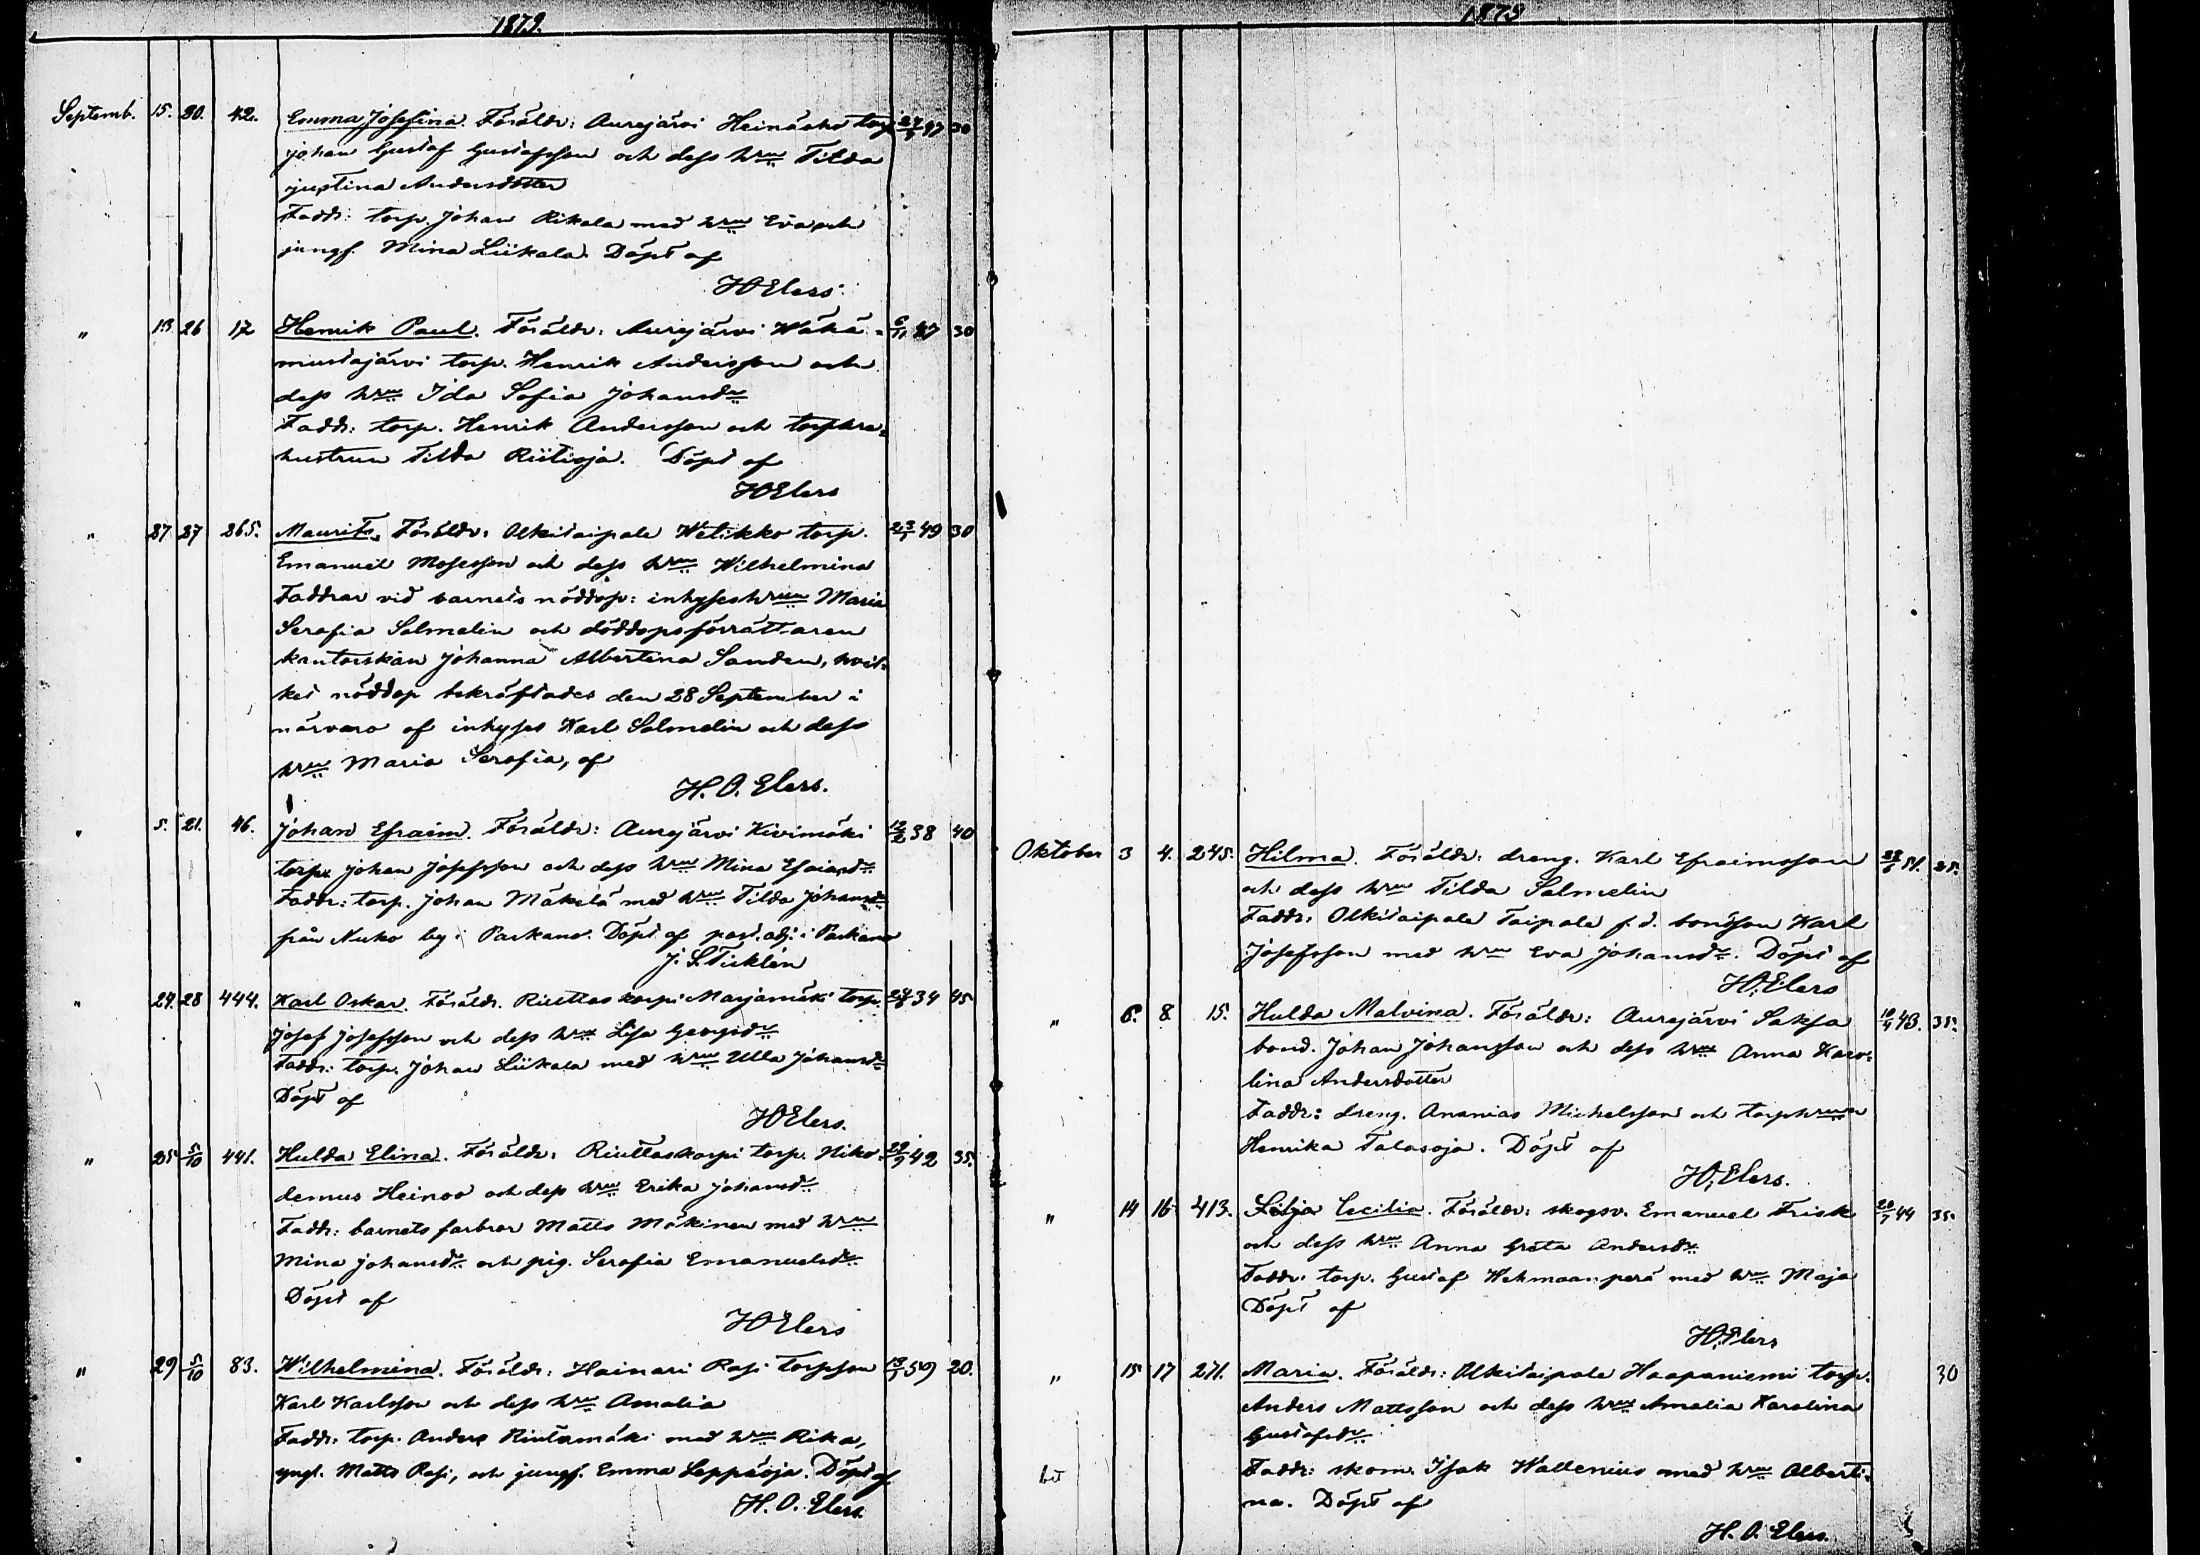 1879.
Septemb. 15. 20. 42. Emma Josefina. Föräldr: Aurejärvi Heinäaho torp. 30
Johan Gustaf Gustafsson och dess hru Tilda
Justina Andersdotter
Fadd: torp. Johan Rikala med hru Eva och
jungf. Mina Liikala. Döpt af
HOElers
" 13 26 17 Henrik Paul. Föräldr: Aurejärvi Wähä- 6/11 30
mustajärvi torp. Henrik Andersson och
dess hru Ida Sofia Johansdr
Fadd: torp. Henrik Andersson och torphre-
hustrun Tilda Riitioja. Döpt af
HOElers
" 27 27 265. Maurits. Föräldr: Olkitaipale Wetikko torp. 49 30
Emanuel Mosesson och dess hru Wilhelmina
Faddrar vid barnets nöddop: inhyseshrun Maria
Serafia Salmelin och döddopsförrättaren
kantorskan Johanna Albertina Sanden, hvil-
ket nöddop bekräftades den 28 September i
närvaro af inhyses Karl Salmelin och dess
hru Maria Serafia, af
H. O. Elers.
" 5. 21. 46. Johan Efraim. Föräldr: Aurejärvi Kivimäki 38 40
torp. Johan Josefsson och dess hru Mina
Fadd: torp. Johan Mäkelä med hru Tilda Johansdr
från by i Parkano. Döpt af past. adj. i Parkano
J. S. Ticklén
" 24. 28 444. Karl Oskar. Föräldr. Riuttaskorpi Marjamäki torp. 34 45
Josef Josefsson och dess hru Lisa Georgsdr
Fadd: torp. Johan Liikala med hru Ulla Johansdr
Döpt af
HOElers.
" 25 5/10 441. Hulda Elina. Föräldr: Riuttaskorpi torp. Niko- 42 35.
demus Heinoo och dess hru Erika Johansdr
Fadd: barnets farbror Matts Mäkinen med hru
Mina Johansdr och pig. Serafia Emanuelsdr
Döpt af
HOElers
" 29 5/10 83. Wilhelmina. Föräldr: Hainari Pasi torpson 59 20.
Karl Karlsson och dess hru Amalia
Fadd: torp. Anders med hru Rika,
yngl. Matts Pasi, och jungf. Emma Leppäoja. Döpt af
H. O. Elers.
1879
Oktober 3 4. 245. Hilma. Föräldr: dreng. Karl Efraimsson 51. 28.
och dess hru Tilda Salmelin
Fadd: Olkitaipale Taipale f.d. bondson Karl
Josefsson med hru Eva Johansdr. Döpt af
HOElers
" 6. 8. 15. Hulda Malvina. Föräldr: Aurejärvi Saksa 43. 35.
bond. Johan Johansson och dess hru Anna Karo-
lina Andersdotter
Fadd: dreng. Ananias Michelsson och torphrun
Henrika Talasoja. Döpt af
HOElers.
" 14 16 413. Silja Cecilia. Föräldr: skogsv. Emanuel Frisk 44 35.
och dess hru Anna Greta Andersdr
Fadd: torp. Gustaf Wehmaanperä med hru Maja
Döpt af
HOElers
" 15 17 271. Maria. Föräldr: Olkitaipale Haapaniemi torp. 30
Anders Mattsson och dess hru Amalia Karolina
Gustafsdr
Fadd: skom. Isak Wallenius med hru Alberti-
na. Döpt af
H. O. Elers.